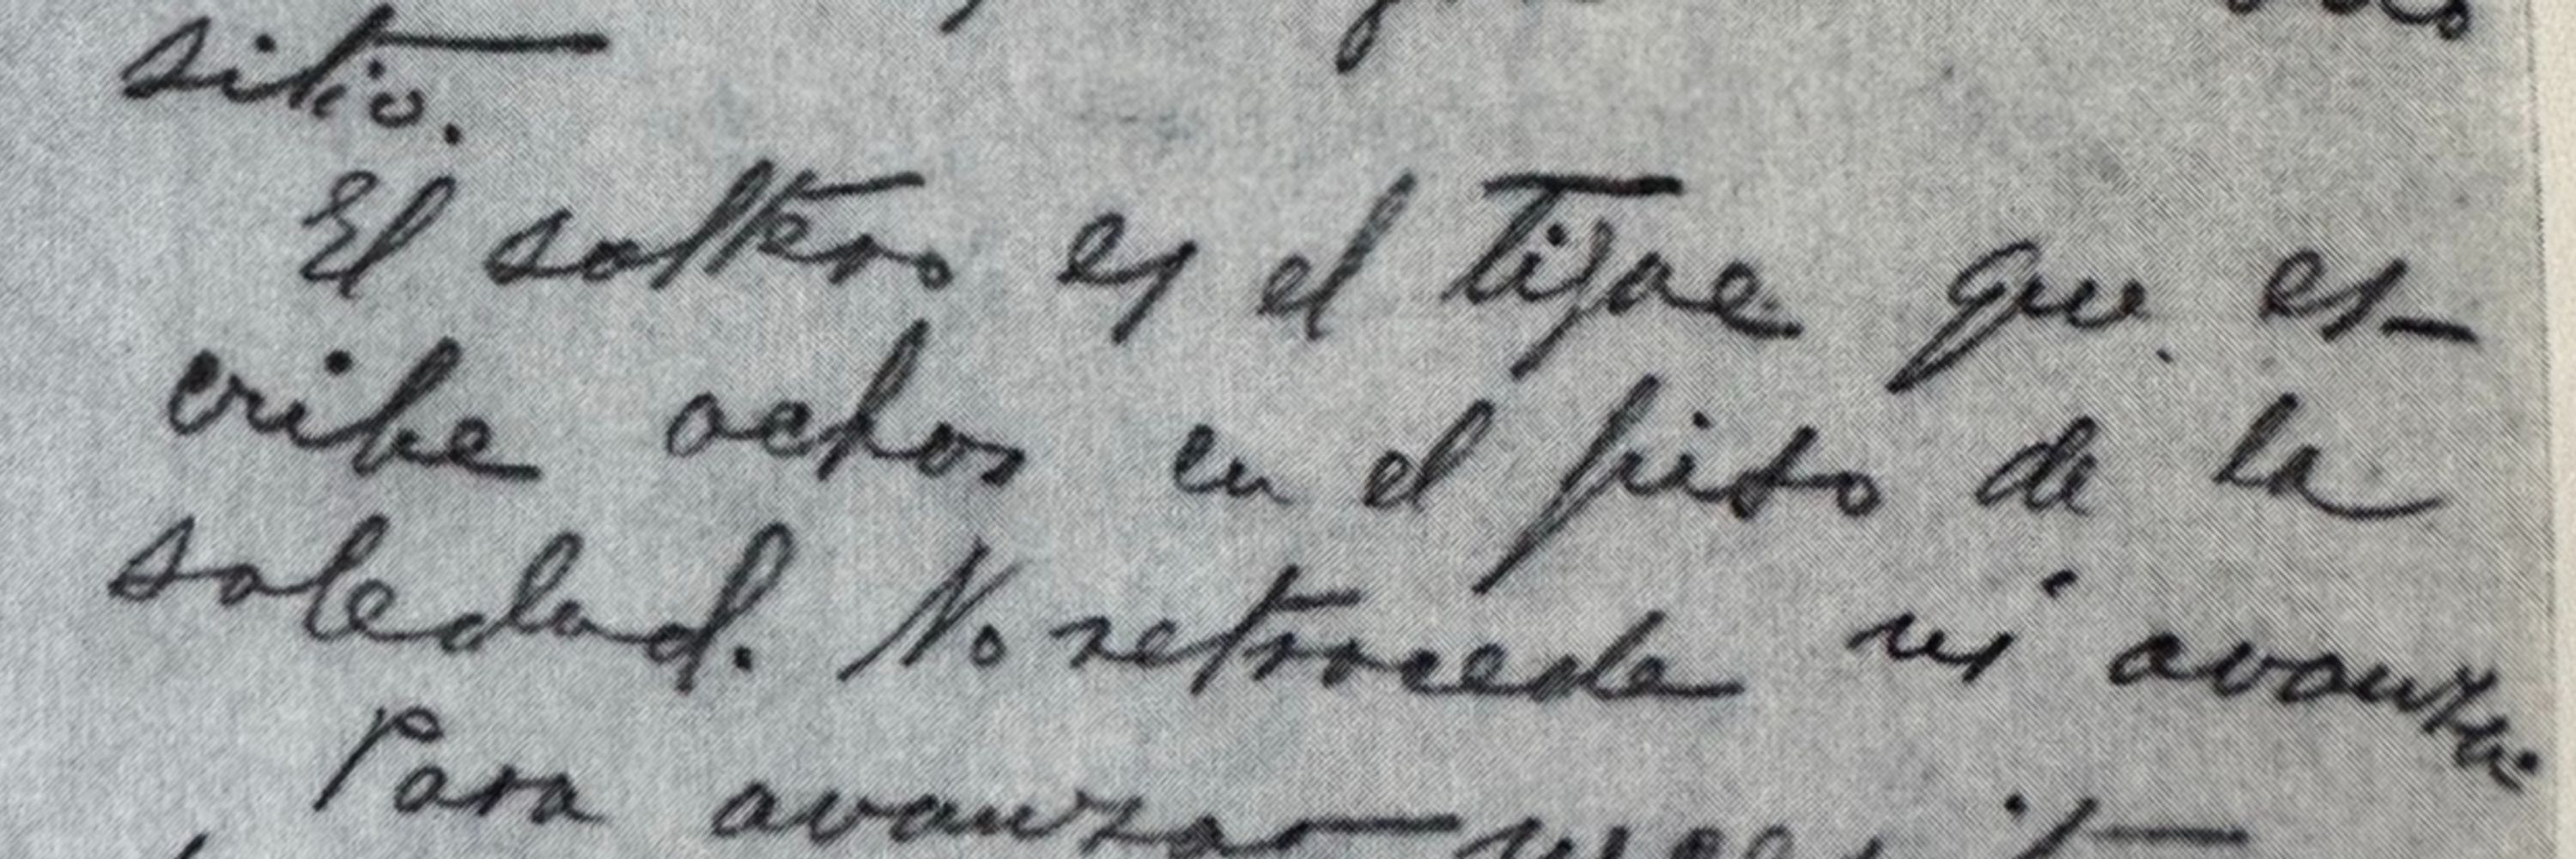 sitio.
El soltero es el tigre que es-
cribe ochos en el piso de la
soledad. No retrocede ni avanza.
Para avanzar necesit